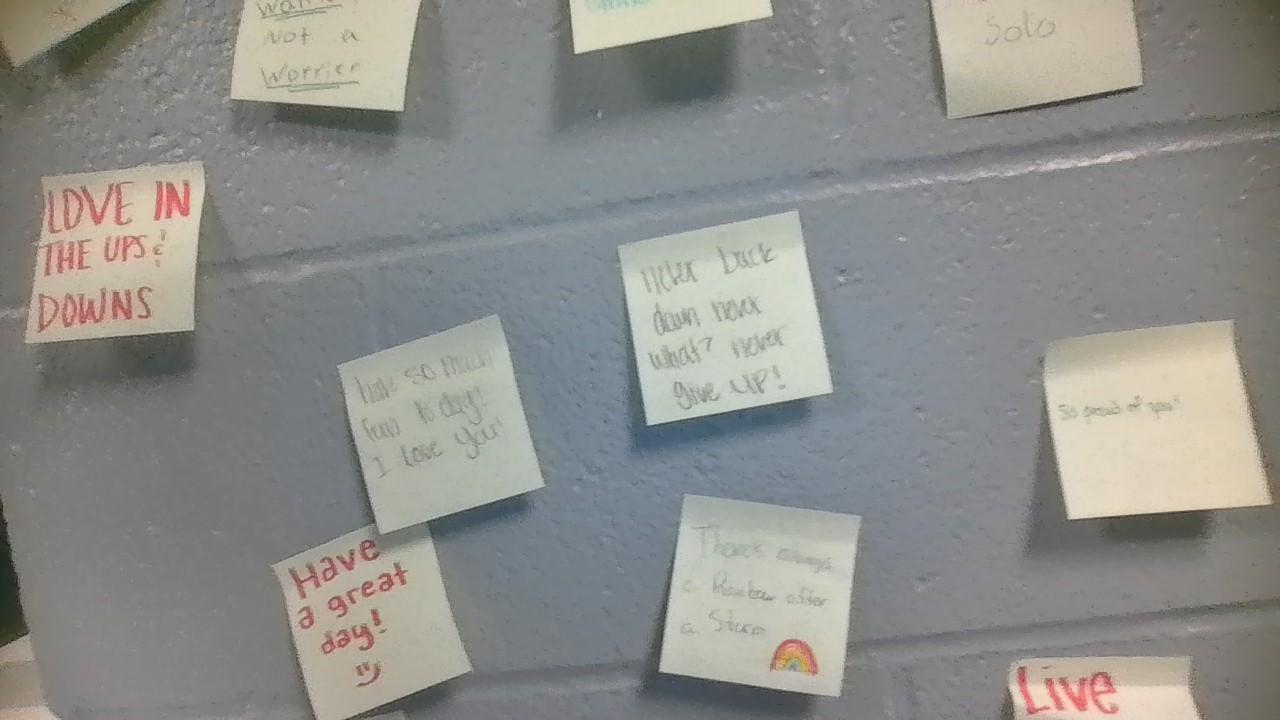 Not a
Worrier
Solo
LOVE IN
THE UPS &
DOWNS
never back
down never
what? never
give UP!
have so much
fun to day!
I love you!
So proud of you!
Have
a great
day!
There's always
a Rainbow after
a Storm
Live